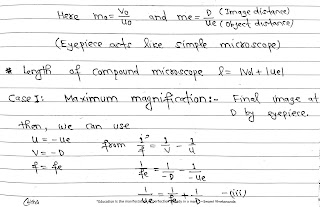 Here mo = Vo/Uo and me = D/Ue (Image distance)/(Object distance)
(Eyepiece acts like simple microscope)
* Length of compound microscope l = |Vo| + |ue|
Case I: Maximum magnification:- Final image at
D by eyepiece.
then, we can use
u = -ue from 1/f = 1/v - 1/u
V = -D
f = fe 1/fe = 1/-D - 1/-ue
1/ue = 1/fe + 1/D -(iii)
"Education is the manifestation of perfection already in a man"